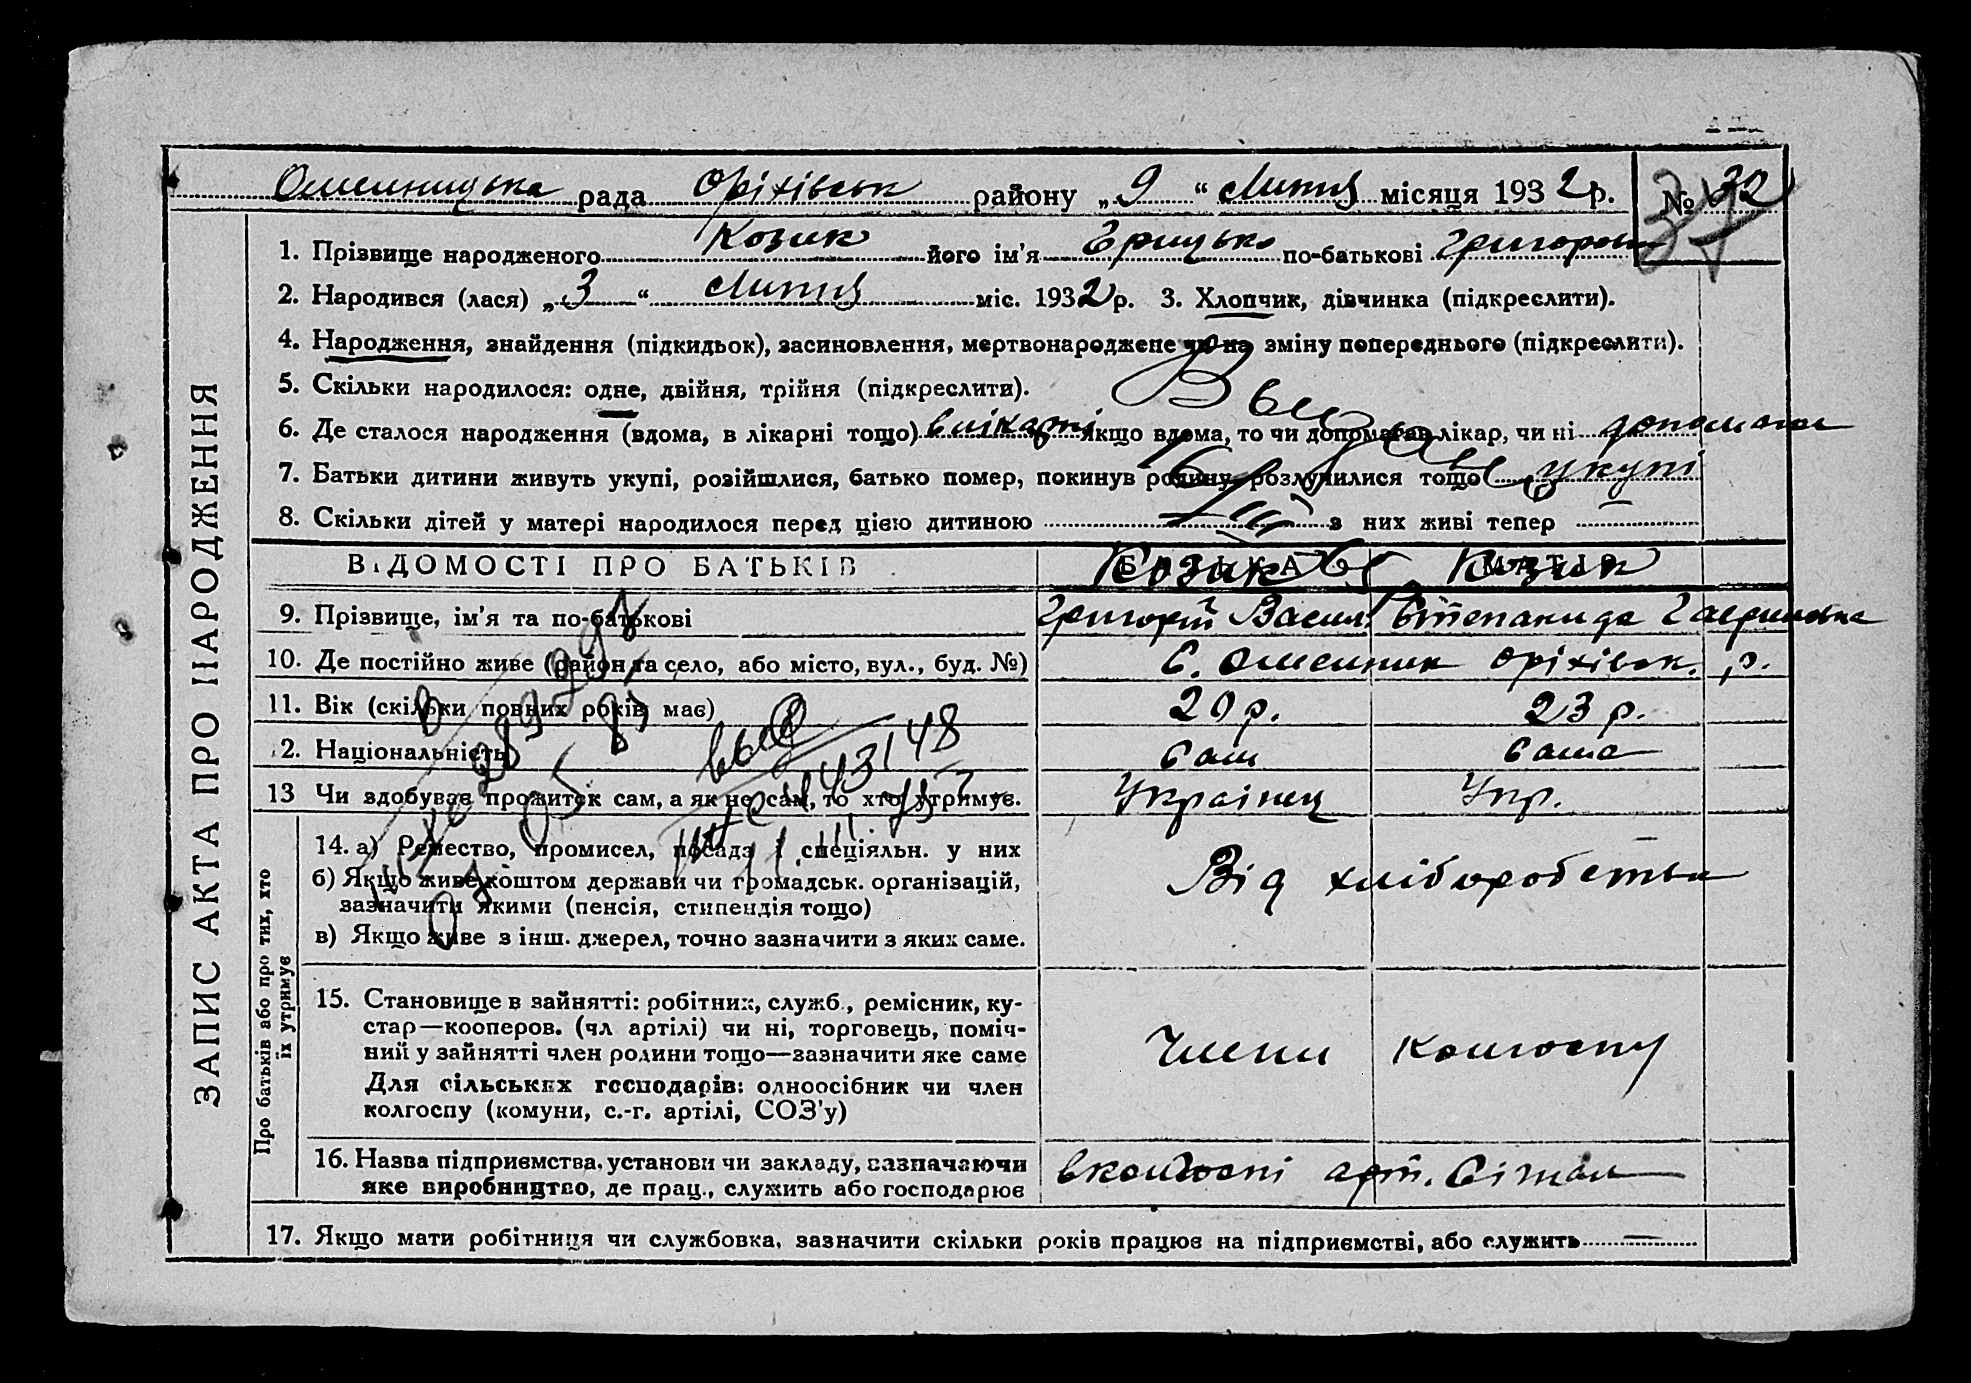 Омельницька рада Оріхівськ району „9“ Липня місяця 1932 р. № 32
37
1. Прізвище народженого Козик його ім'я Грицько по-батькові Григоров
2. Народився (лася) „3“ Липня міс. 1932 р. 3. Хлопчик, дівчинка (підкреслити).
4. Народження, знайдення (підкидьок), засиновлення, мертвонароджене чи на зміну попереднього (підкреслити).
5. Скільки народилося: одне, двійня, трійня (підкреслити).
6. Де сталося народження (вдома, в лікарні тощо) в лікарні якщо вдома, то чи допомагав лікар, чи ні допомагав
7. Батьки дитини живуть укупі, розійшлися, батько помер, покинув родину, розлучилися тощо укупі
8. Скільки дітей у матері народилося перед цією дитиною з них живі тепер —
ЗАПИС АКТА ПРО НАРОДЖЕННЯ
ВІДОМОСТІ ПРО БАТЬКІВ БАТЬКА МАТІР
Козик Козик
9. Прізвище, ім'я та по-батькові Григорій Васил. Степанида Гавриловна
10. Де постійно живе (район та село, або місто, вул., буд. №) С. Омельник Оріхівськ. р.
11. Вік (скільки повних років має) 20 р. 23 р.
12. Національність сам сама
13 Чи здобував прожиток сам, а як не сам, то хто утримує. Українец Укр.
Про батьків або про тих, хто їх утримує
14. а) Ремество, промисел, посада і спеціяльн. у них
б) Якщо живе коштом держави чи громадськ. організацій,
зазначити якими (пенсія, стипендія тощо)
в) Якщо живе з інш. джерел, точно зазначити з яких саме.
Від хліборобства
15. Становище в зайнятті: робітник, служб., ремісник, ку-
стар—кооперов. (чл артілі) чи ні, торговець, поміч-
ний у зайнятті член родини тощо—зазначити яке саме
Для сільських господарів: одноосібник чи член
колгоспу (комуни, с.-г. артілі, СОЗ'у)
Члени колгоспу
16. Назва підприємства, установи чи закладу, зазначаючи
яке виробництво, де прац., служить або господарює
в колгоспі арт.
17. Якщо мати робітниця чи службовка, зазначити скільки років працює на підприємстві, або служить —